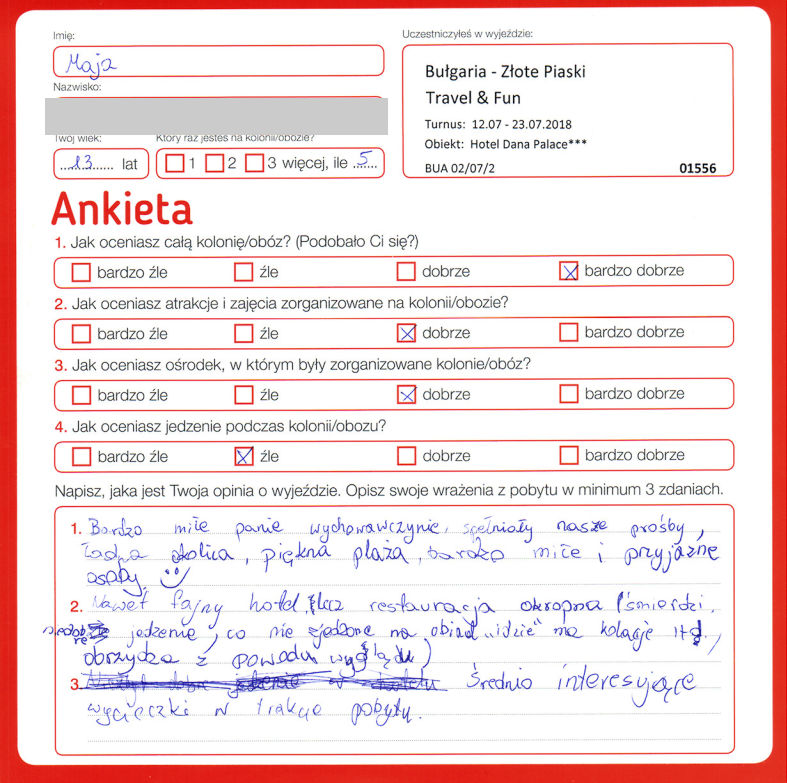 Imię:
Maja
Nazwisko:
Twój wiek: Który raz jesteś na kolonii/obozie?
13 lat 1 2 3 więcej, ile 5
Uczestniczyłeś w wyjeździe:
Bułgaria - Złote Piaski
Travel & Fun
Turnus: 12.07 - 23.07.2018
Obiekt: Hotel Dana Palace***
BUA 02/07/2 01556
Ankieta
1. Jak oceniasz całą kolonię/obóz? (Podobało Ci się?)
bardzo źle źle dobrze bardzo dobrze
2. Jak oceniasz atrakcje i zajęcia zorganizowane na kolonii/obozie?
bardzo źle źle dobrze bardzo dobrze
3. Jak oceniasz ośrodek, w którym były zorganizowane kolonie/obóz?
bardzo źle źle dobrze bardzo dobrze
4. Jak oceniasz jedzenie podczas kolonii/obozu?
bardzo źle źle dobrze bardzo dobrze
Napisz, jaka jest Twoja opinia o wyjeździe. Opisz swoje wrażenia z pobytu w minimum 3 zdaniach.
1. Bardzo miłe panie wychowawczynie, spełniały nasze prośby,
ładna okolica, piękna plaża, bardzo miłe i przyjazne
osoby.
2. Nawet fajny hotel, lecz restauracja okropna (śmierdzi,
niedobre jedzenie, co nie zjedzone na obiad „idzie" na kolację itd.,
obrzydza z powodu wyglądu)
3. Średnio interesujące
wycieczki w trakcie pobytu.